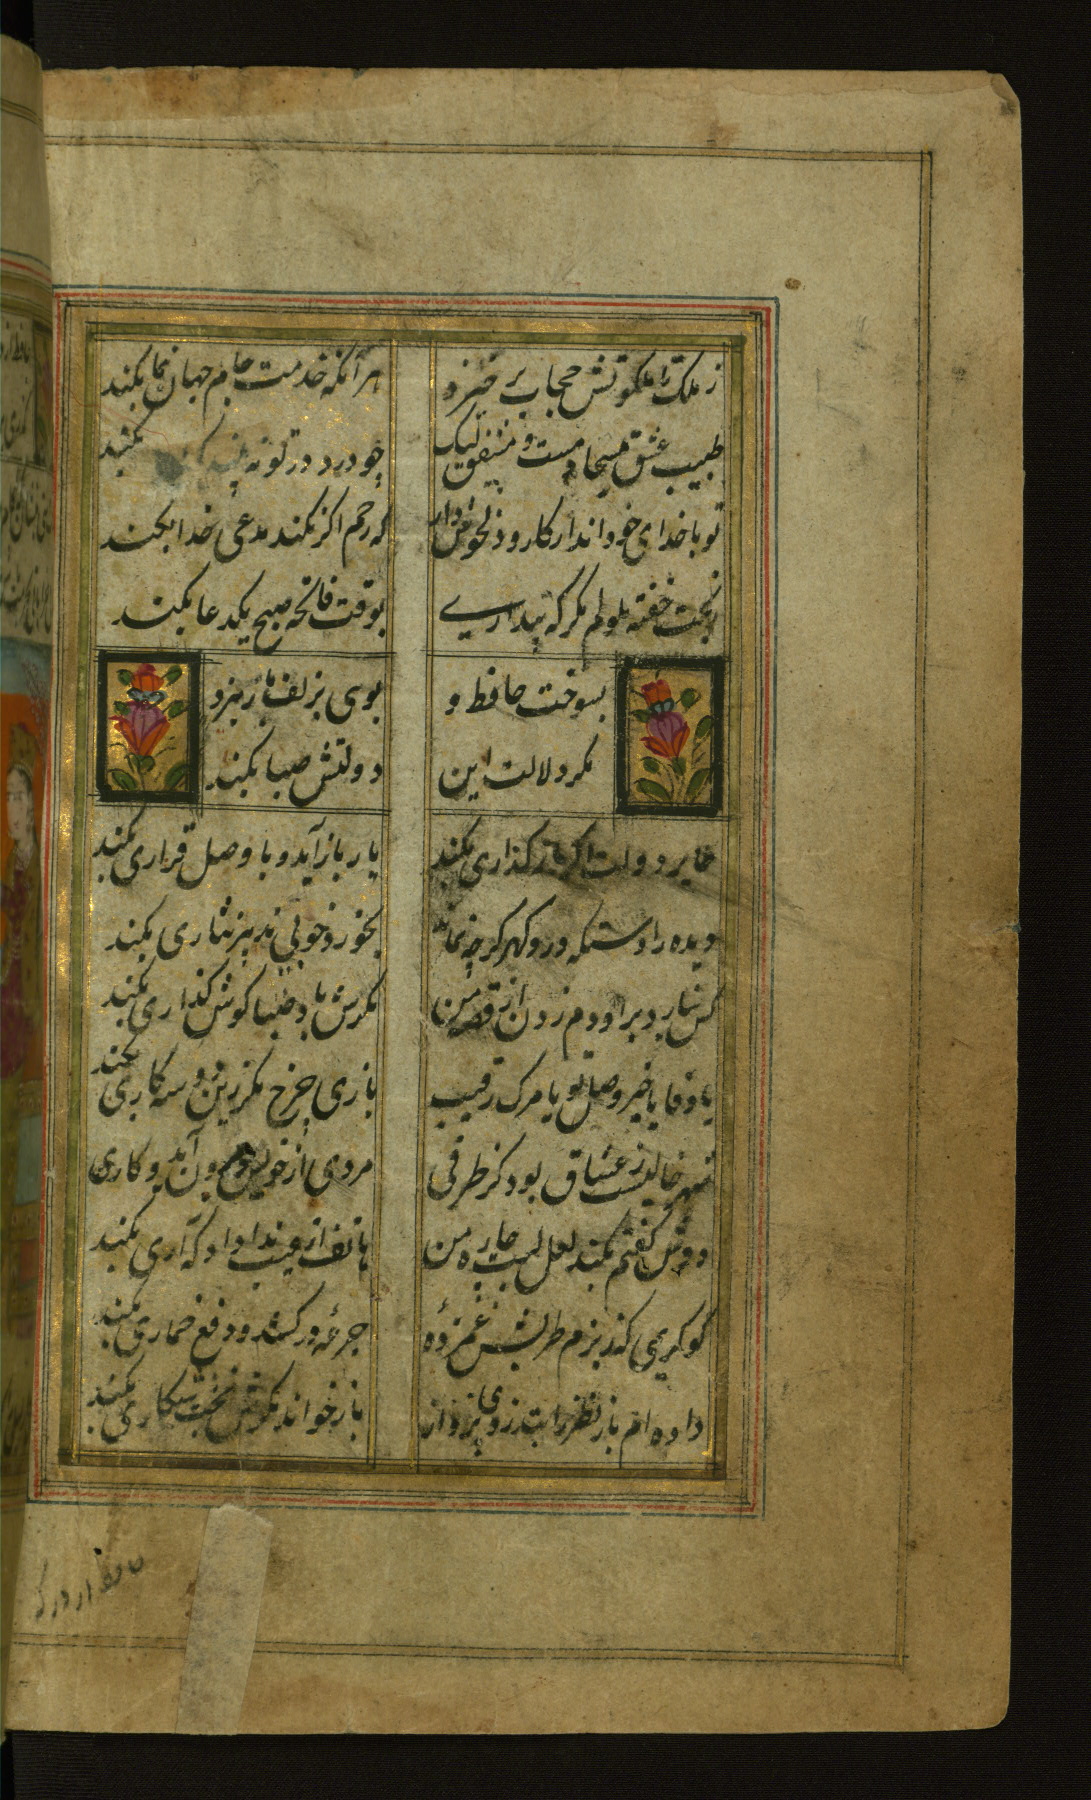 ز ملک تا ملکوتش حجاب بر خیزد
هر آنکه خدمت جام جهان نما بکند
طبیب عشق مسیحا دمست و مشفق لیک
چو درد در تو نه بیند که بکند
تو با خدای خود انداز کار و دل خوش دار
که رحم اگر نکند مدعی خدا بکند
ز بخت خفته ملولم مگر که بیداری
بوقت فاتحه صبح یکدعا بکند
بسوخت حافظ و
بوی بزلف یار نبرد
مگر دلالت این
دولتش صبا بکند
طایر دولت اگر باز گذاری بکند
یار باز آید و با وصل قراری بکند
دیده را دستگه در و گهر گرچه نماند
بخورد خونی تدبیر نثاری بکند
کس نیارد بر او دم زدن از قصه من
مگرش باد صبا گوش گذاری بکند
یا وفا یا خبر وصل تو یا مرگ رقیب
بازی چرخ مگر زین دو سه کاری بکند
شهر خالیست ز عشاق بود کز طرفی
مردی از خویش برون آید و کاری
دوش گفتم بکند لعل لبت چاره من
هاتف از غیب ندا داد که آری بکند
کو کریمی که ز بزم طربش غمزده
جرعه درکشد و دفع خماری بکند
داده ام باز نظر را بتذروی پرواز
باز خواند مگرش بخت شکاری بکند
حافظ ار در